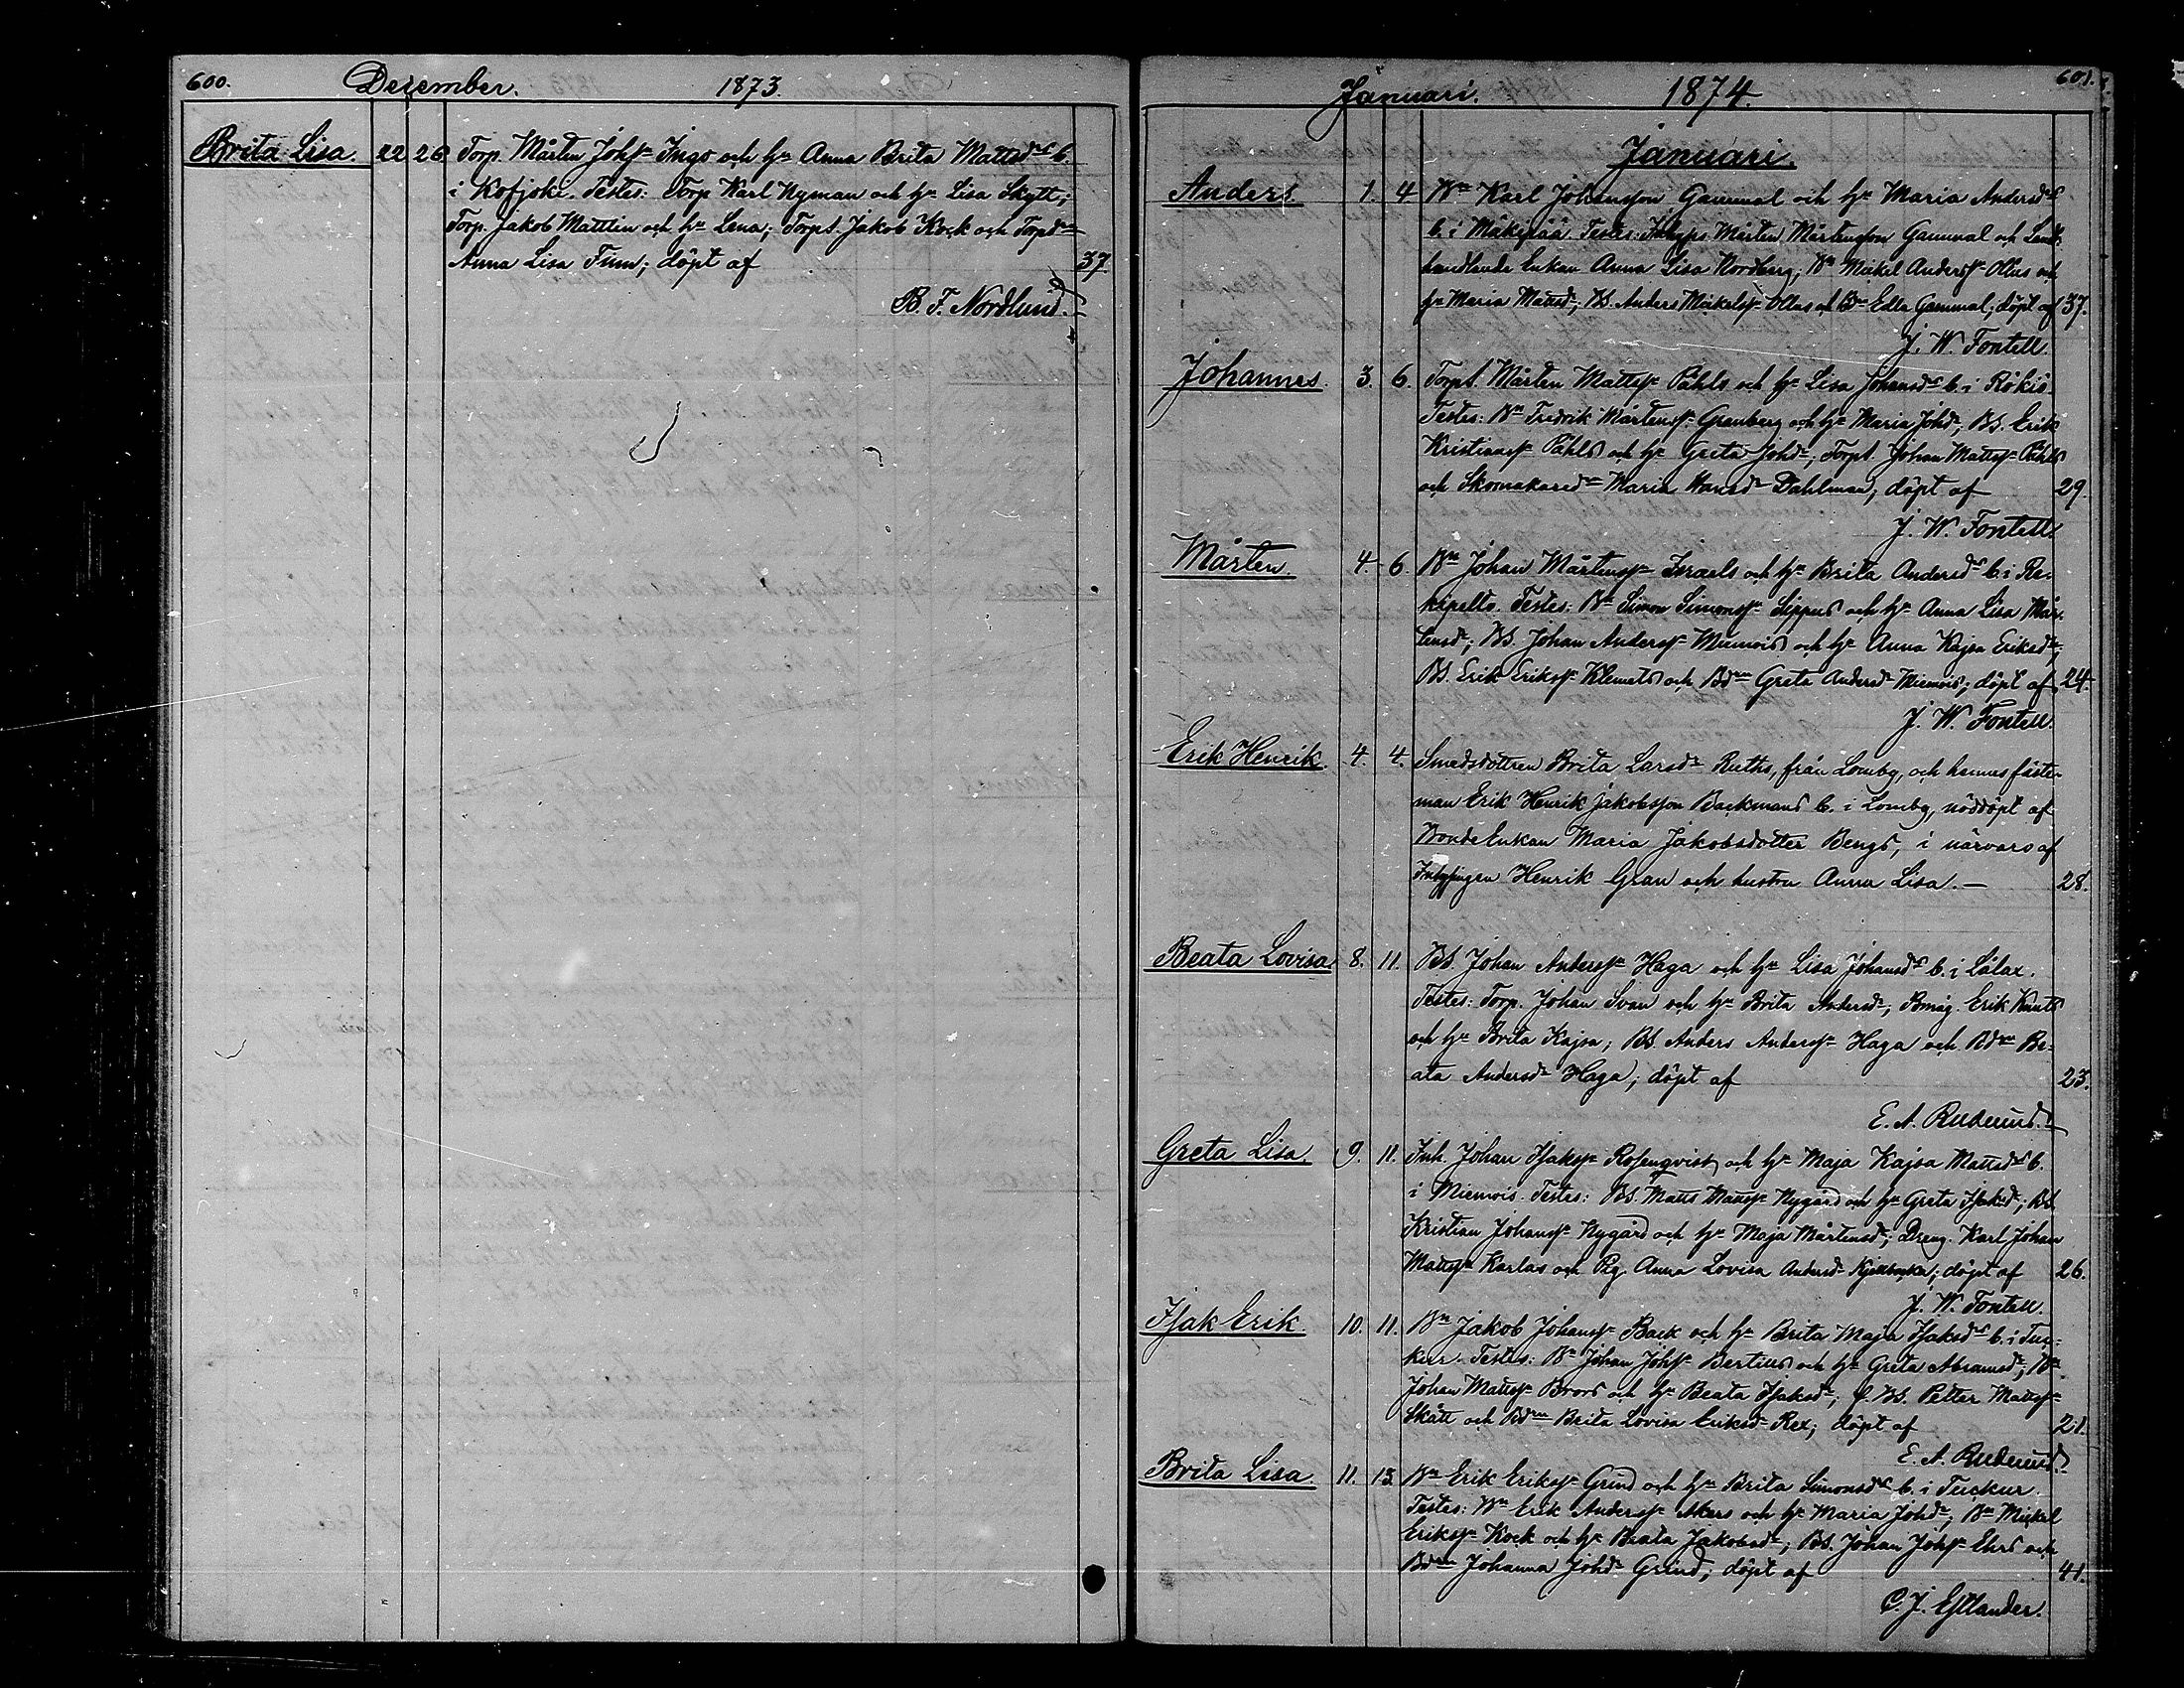 600. Dezember. 1873.
Brita Lisa. 22 26 Torp. Mårten Johsn Ingo och hu Anna Brita Mattsdr b.
i Kofjoki. Testes: Torp Karl Nyman och hu Lisa Skytt;
Torp. Jakob Mattlin och hu Lena; Torps. Jakob Kock och Torpdn
Anna Lisa Finn; döpt af 37
B. F. Nordlund.
Januari. 1874. 601.
Januari.
Anders. 1. 4 Bn Karl Johansson Gammal och hu Maria Andersdr
b. i Mäkipää. Testes: Inhyss Mårten Mårtensson Gammal och Land-
handlande Enkan Anna Lisa Nordberg; Bn Mickel Anderss Ollas och
hu Maria Mattsdr; BS. Anders Mickelss Ollas och Bdn Edla Gammal; döpt af 37.
J. W. Fontell.
Johannes. 3. 6. Torps. Mårten Mattss Påhls och hu Lisa Johansdr b. i Rökiö.
Testes: Bn Fredrik Mårtenss Granberg och hu Maria Johdr; BS. Erik
Kristianss Påhls och hu Greta Johdr; Torps. Johan Mattss Påhls
och Skomakaredn Maria Hansdr Dahlman; döpt af 29.
J. W. Fontell.
Mårten. 4. 6. Bn Johan Mårtenss Israels och hu Brita Andersdr b. i Re-
kipelto. Testes: Bn Simon Simonss Sippus och hu Anna Lisa Mår-
tensdr; BS. Johan Anderss Miemois och hu Anna Kajsa Eriksdr;
BS. Erik Erikss Klemets och Bdn Greta Andersdr Miemois; döpt af 24.
J. W. Fontell.
Erik Henrik. 4. 4. Smedsdottren Brita Larsdr Ruths, från Lomby, och hennes fäste-
man Erik Henrik Jakobsson Backmans b. i Lomby, nöddöpt af
Bonde Enkan Maria Jakobsdotter Bengs, i närvaro af
Inhysingen Henrik Gran och hustru Anna Lisa. — 28.
Beata Lovisa. 8. 11. BS. Johan Anderss Haga och hu Lisa Johansdr b. i Lålax.
Testes: Torp. Johan Svan och hu Brita Andersdr; Bmåg. Erik Knuts
och hu Brita Kajsa; BS. Anders Anderss Haga och Bdn Be-
ata Andersdr Haga; döpt af 23.
E. A. Rudnäs.
Greta Lisa. 9. 11. Inh. Johan Isakss Rosenqvist och hu Maja Kajsa Mattsdr b.
i Miemois. Testes: BS. Matts Mattss Nygård och hu Greta Isaksdr; BS.
Kristian Johanss Nygård och hu Maja Mårtensdr; Dreng. Karl Johan
Mattss Karlas och Pig. Anna Lovisa Andersdr; döpt af 26.
J. W. Fontell.
Isak Erik. 10. 11. Bn Jakob Johanss Back och hu Brita Maja Isaksdr b. i Tuc-
kur. Testes: Bn Johan Johss Bertills och hu Greta Abramsdr; Bn
Johan Mattss Brors och hu Beata Isaksdr; f. BS. Petter Mattss
Skått och Bdn Brita Lovisa Eriksdr Rex; döpt af 21.
E. A. Rudnäs.
Brita Lisa. 11. 13. Bn Erik Erikss Grind och hu Brita Simonsdr b. i Tuckur.
Testes: Bn Erik Anderss Akers och hu Maria Johdr; Bn Mickel
Erikss Kock och hu Beata Jakobsdr; BS. Johan Johss Ehrs och
Bdn Johanna Johdr Grind; döpt af 41.
C. J. Estlander.